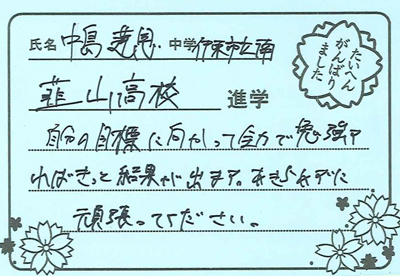 氏名 中島 中学 伊東市立南
韮山高校 進学
自分の目標に向かって全力で勉強す
ればきっと結果が出ます。あきらめずに
頑張ってください。
たいへん
がんばり
ました